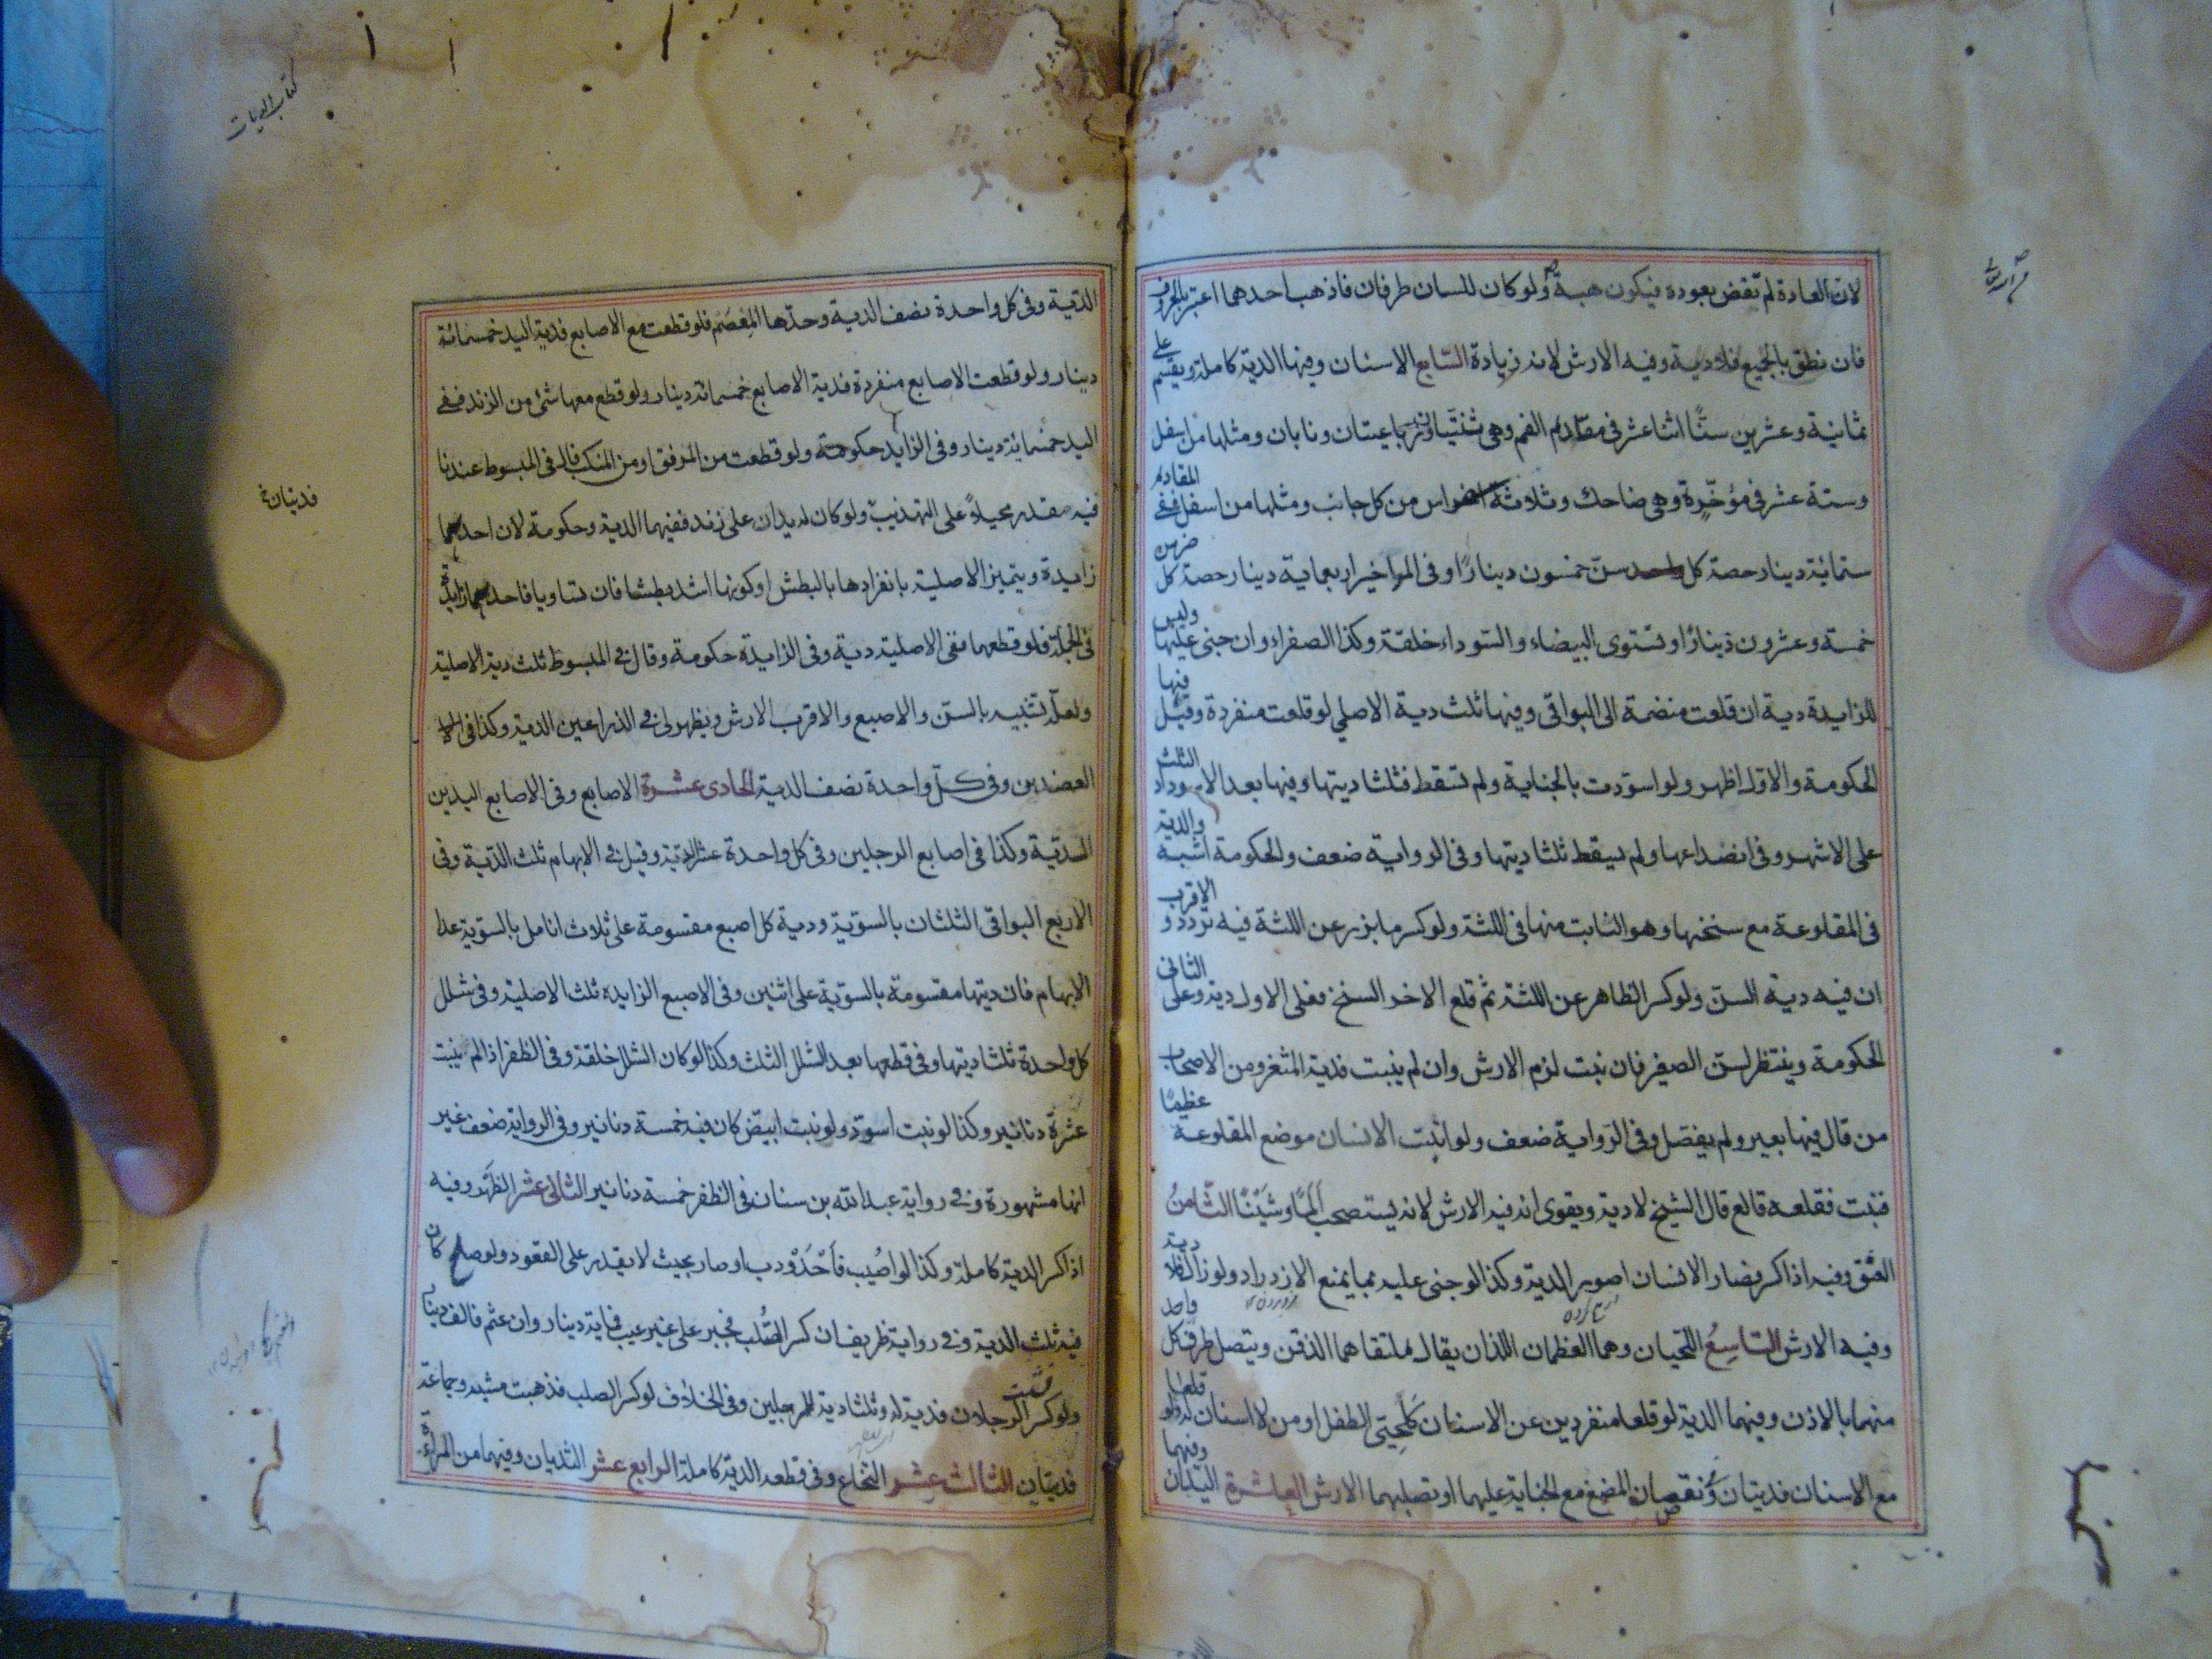 لان العادة لم تقض بعوده فيكون هبة ولو كان للسان طرفان فاذهب احدهما اعتبر بالحروف
فان نطق بالجميع فلا دية وفيه الارش لانه زيادة السابع الاسنان وفيها الدية كاملة ويقسم على
ثمانية وعشرين سنًّا اثنا عشر في مقاديم الفم وهي ثنيتان ورباعيتان ونابان ومثلها من اسفل
وستة عشر في مؤخره وهي ضاحك وثلاثة اضراس من كل جانب ومثلها من اسفل ففي المقاديم
ستمائة دينار حصة كل سن خمسون دينارًا وفي المواخير اربعماية دينار حصة كل ضرس
خمسة وعشرون دينارًا وتستوي البيضاء والسوداء خلقة وكذا الصفراء وان جنى عليها وليس
للزايدة دية ان قلعت منضمة الى البواقي وفيها ثلث دية الاصلي لو قلعت منفردة وقيل فيها
الحكومة والاول اظهر ولو اسودت بالجناية ولم تسقط فثلثا ديتها وفيها بعد الاسوداد الثلث
على الاشهر وفي انصداعها ولم يسقط ثلثا ديتها وفي الرواية ضعف والحكومة اشبه والدية
في المقلوعة مع سنخها وهو الثابت منها في اللثة ولو كسر ما برز عن اللثة فيه تردد و الاقرب
ان فيه دية السن ولو كسر الظاهر عن اللثة ثم قلع الاخر السنخ فعلى الاول دية وعلى الثاني
الحكومة وينتظر لسن الصغير فان نبت لزم الارش وان لم ينبت فدية المثغر ومن الاصحاب
من قال فيها بعير ولم يفصل وفي الرواية ضعف ولو انبت الانسان موضع المقلوعة عظيمًا
فنبت فقلعه قالع قال الشيخ لا دية ويقوى انه فيه الارش لانه يستصحب ألمًا وشينًا الثامن
العنق وفيه اذا كسر فصار الانسان اصور الدية وكذا لو جنى عليه بما يمنع الازدراد ولو زال فلا دية
وفيه الارش التاسع اللحيان وهما العظمان اللذان يقال ملتقاهما الذقن ويتصل طرف كل واحد
منهما بالاذن وفيهما الدية لو قلعا منفردين عن الاسنان كلحيتي الطفل او من لا اسنان له ولو قلعا
مع الاسنان فديتان ونقصان المضغ مع الجناية عليهما او تصلبهما الارش العاشرة اليدان وفيهما
كتاب الديات
الدية وفي كل واحدة نصف الدية وحدها المعصم فلو قطعت مع الاصابع فدية اليد خمسمائة
دينار ولو قطعت الاصابع منفردة فدية الاصابع خمسمائة دينار ولو قطع معها شئ من الزند ففي
اليد خمسمائة دينار وفي الزايد حكومة ولو قطعت من المرفق او من المنكب قال في المبسوط عندنا
فيه مقدر محيلاً على التهذيب ولو كان له يدان على زند ففيهما الدية وحكومة لان احديهما
زايدة ويتميز الاصلية بانفرادها بالبطش او كونها اشد بطشا فان تساويا فاحديهما زايدة
في الجملة فلو قطعهما ففي الاصلية دية وفي الزايدة حكومة وقال في المبسوط ثلث دية الاصلية
ولعله تشبيه بالسن والاصبع والاقرب الارش ويظهر لي في الذراعين الدية وكذا في
العضدين وفي كل واحدة نصف الدية الحادي عشرة الاصابع وفي الاصابع اليدين
الدية وكذا في اصابع الرجلين وفي كل واحدة عشر الدية وقيل في الابهام ثلث الدية وفي
الاربع البواقي الثلثان بالسوية ودية كل اصبع مقسومة على ثلاث انامل بالسوية عدا
الابهام فان ديتها مقسومة بالسوية على اثنين وفي الاصبع الزايدة ثلث الاصلية وفي شلل
كل واحدة ثلثا ديتها وفي قطعها بعد الشلل الثلث وكذا لو كان الشلل خلقة وفي الظفر اذا لم ينبت
عشرة دنانير وكذا لو نبت اسود ولو نبت ابيض كان فيه خمسة دنانير وفي الرواية ضعف غير
انها مشهورة وفي رواية عبد الله بن سنان في الظفر خمسة دنانير الثاني عشر الظهر وفيه
اذا كسر الدية كاملة وكذا لو اصيب فاحدودب او صار بحيث لا يقدر على القعود ولو صلح كان
فيه ثلث الدية وفي رواية ظريف ان كسر الصلب فجبر على غير عيب فماية دينار وان عثم فالف دينار
ولو كسر فشلت الرجلان فدية له وثلثا دية للرجلين وفي الخلاف لو كسر الصلب فذهبت مشيه وجماعه
فديتان الثالث عشر النخاع وفي قطعه الدية كاملة الرابع عشر الثديان وفيهما من المراة
فديتان خ